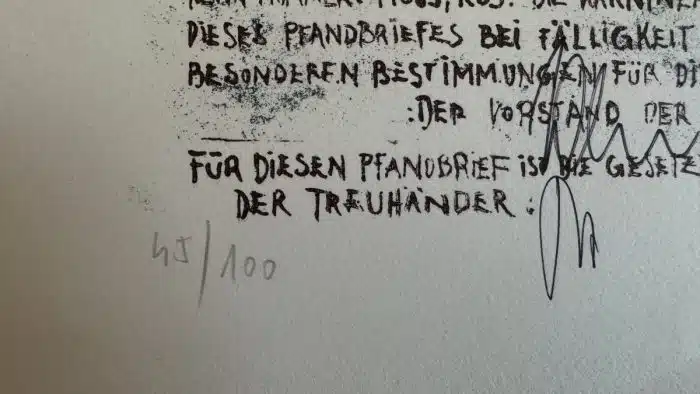 DIESES PFANDBRIEFES BEI FÄLLIGKEIT
BESONDEREN BESTIMMUNGEN FÜR DI
:DER VORSTAND DER
FÜR DIESEN PFANDBRIEF IST DIE GESETZ
DER TREUHÄNDER :
45/100